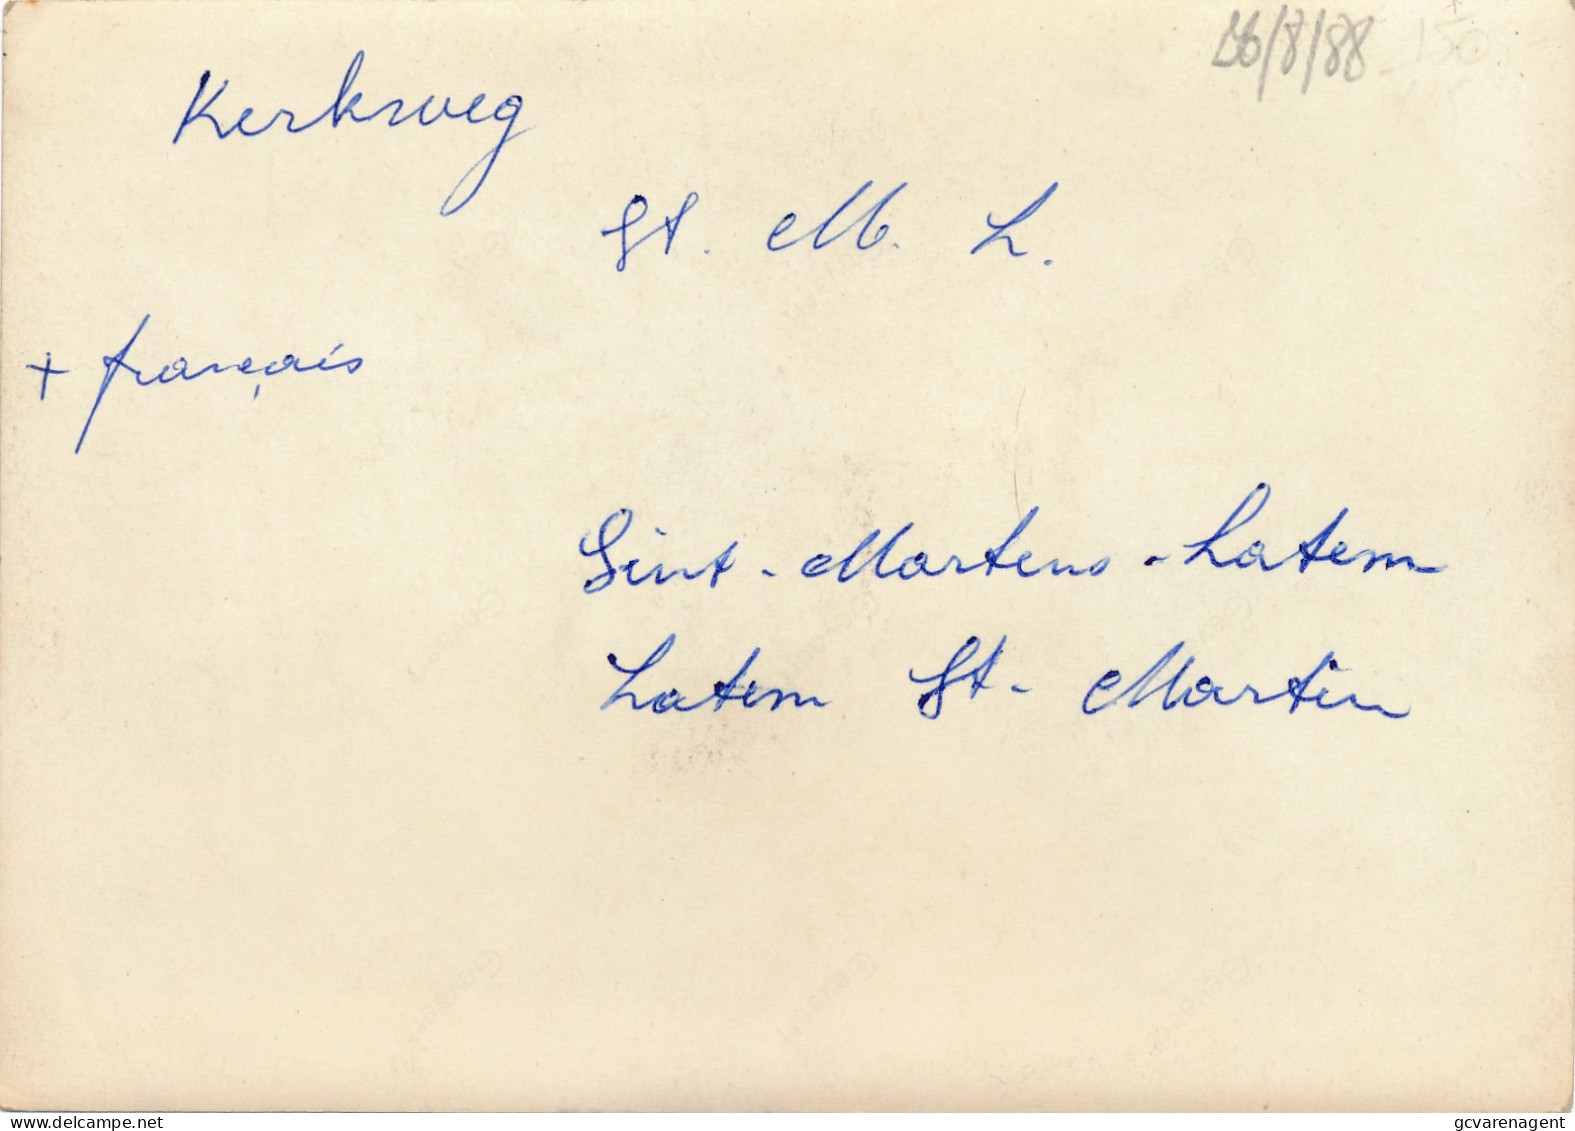 26/8/88 150
Kerkweg
St. M. L.
+ français
Sint-Martens-Latem
Latem St-Martin
Gevaert
delcampe.net
gcvarenagent